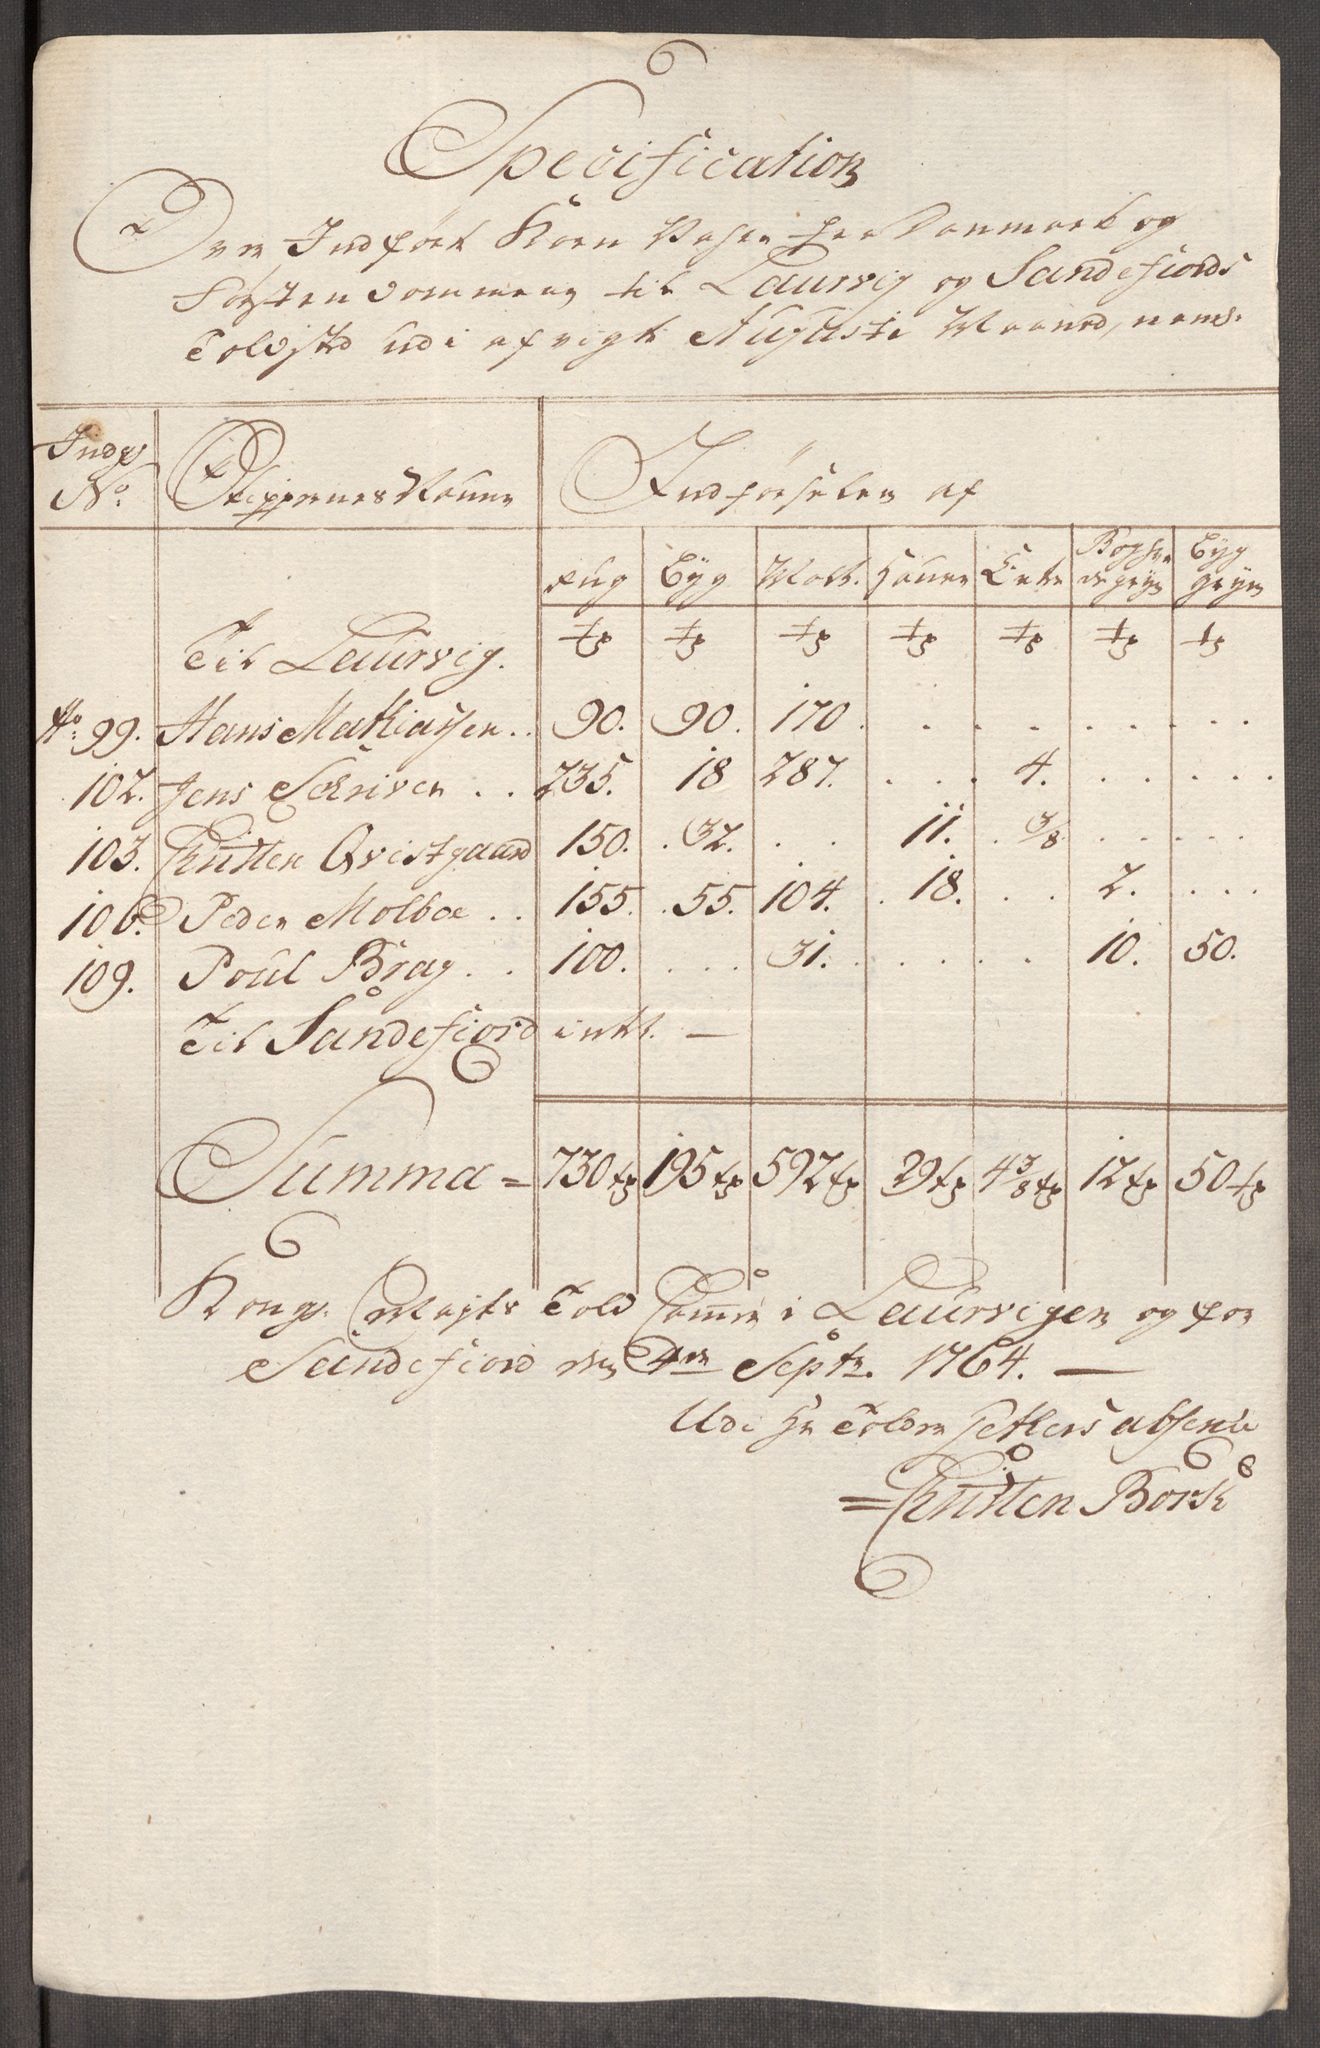 Specification
Over Indført Korn Vahre fra Danmark og
Førstendommene til Laurvig og Sandefiords
Toldsted udi afvigte Augusti Maaned, neml.
Indg
No. Skippernes Nafne Indførselen af
Rug Byg Malt. Hafre Erter Boghvedegryn Byggryn
Til Laurvig. tr tr tr tr tr tr tr
No. 99. Hans Mathiasen .. 90. 90. 170 . . . . . . . . .
102. Jens Schriver . . 235. 18 287. . . . 4. . . . . . .
103. Christen Qvistgaard 150. . 32. . . 11. . 3/8 . . . . . .
106. Peder Molboe . . 155. . 55. 104. . 18. . . 2. . . .
109. Poul Brag . . 100. . . . 31. . . . . . 10. 50.
Til Sandefiord intet. —
Summa = 730 tr 195 tr 592 tr 29 tr 4 3/8 tr 12 tr 50 tr
Kongl. Mayts Told Cammer i Laurvigen og for
Sandefiord den 4de Septr. 1764. —
Udi Hr Tolder Setlers absence
= Christen Bork